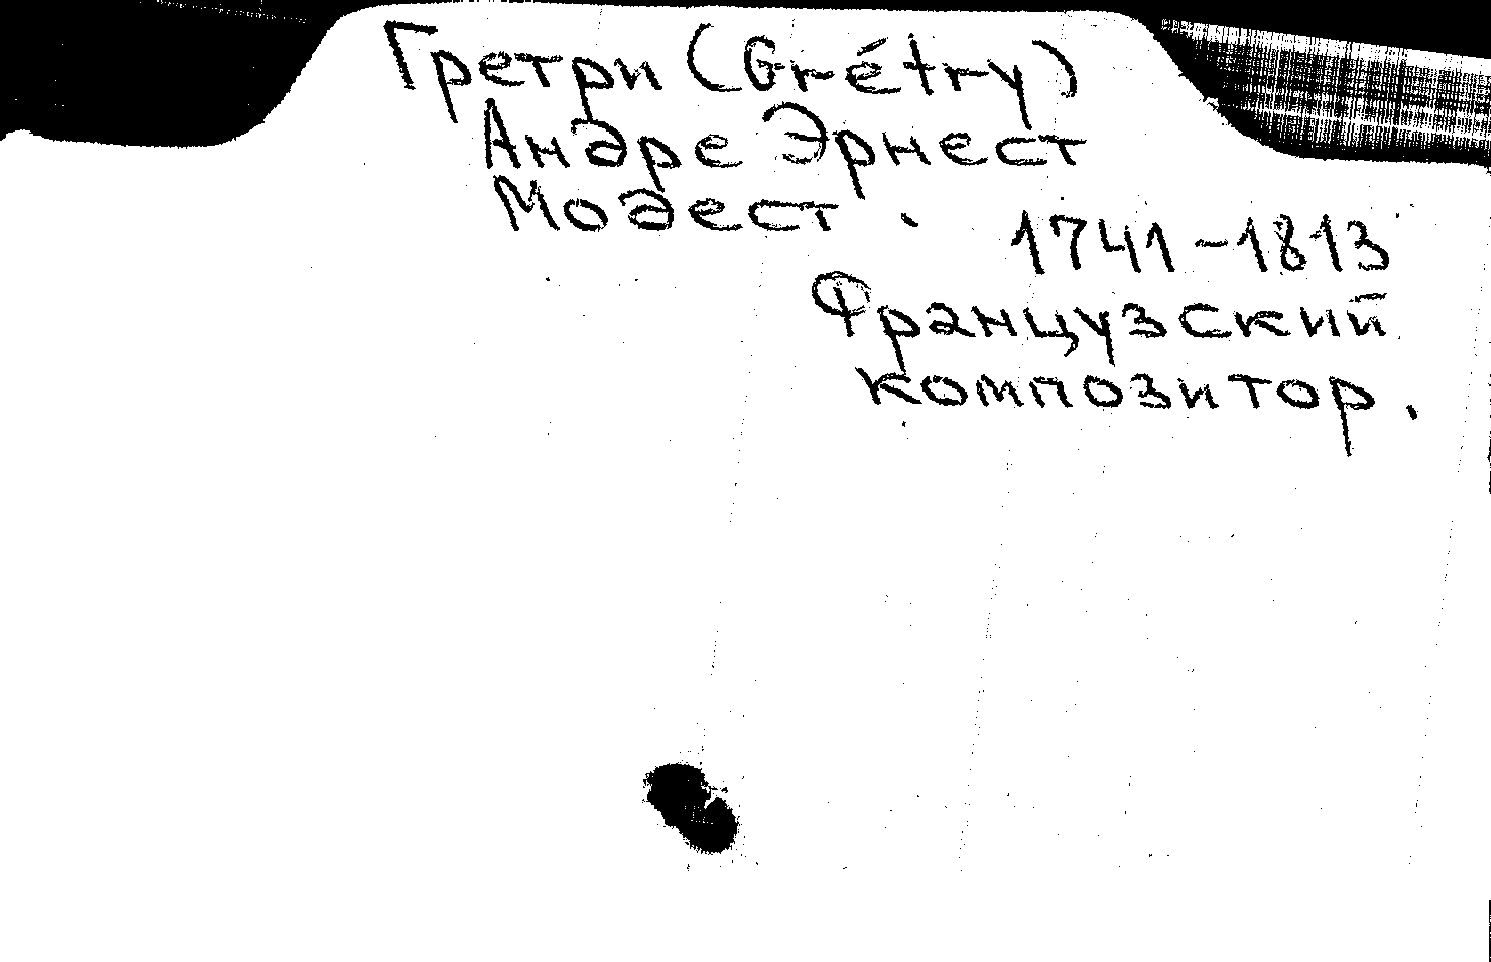 Гретри (Grétry)
Андре Эрнест
Модест.
1741-1813
Французский
композитор.